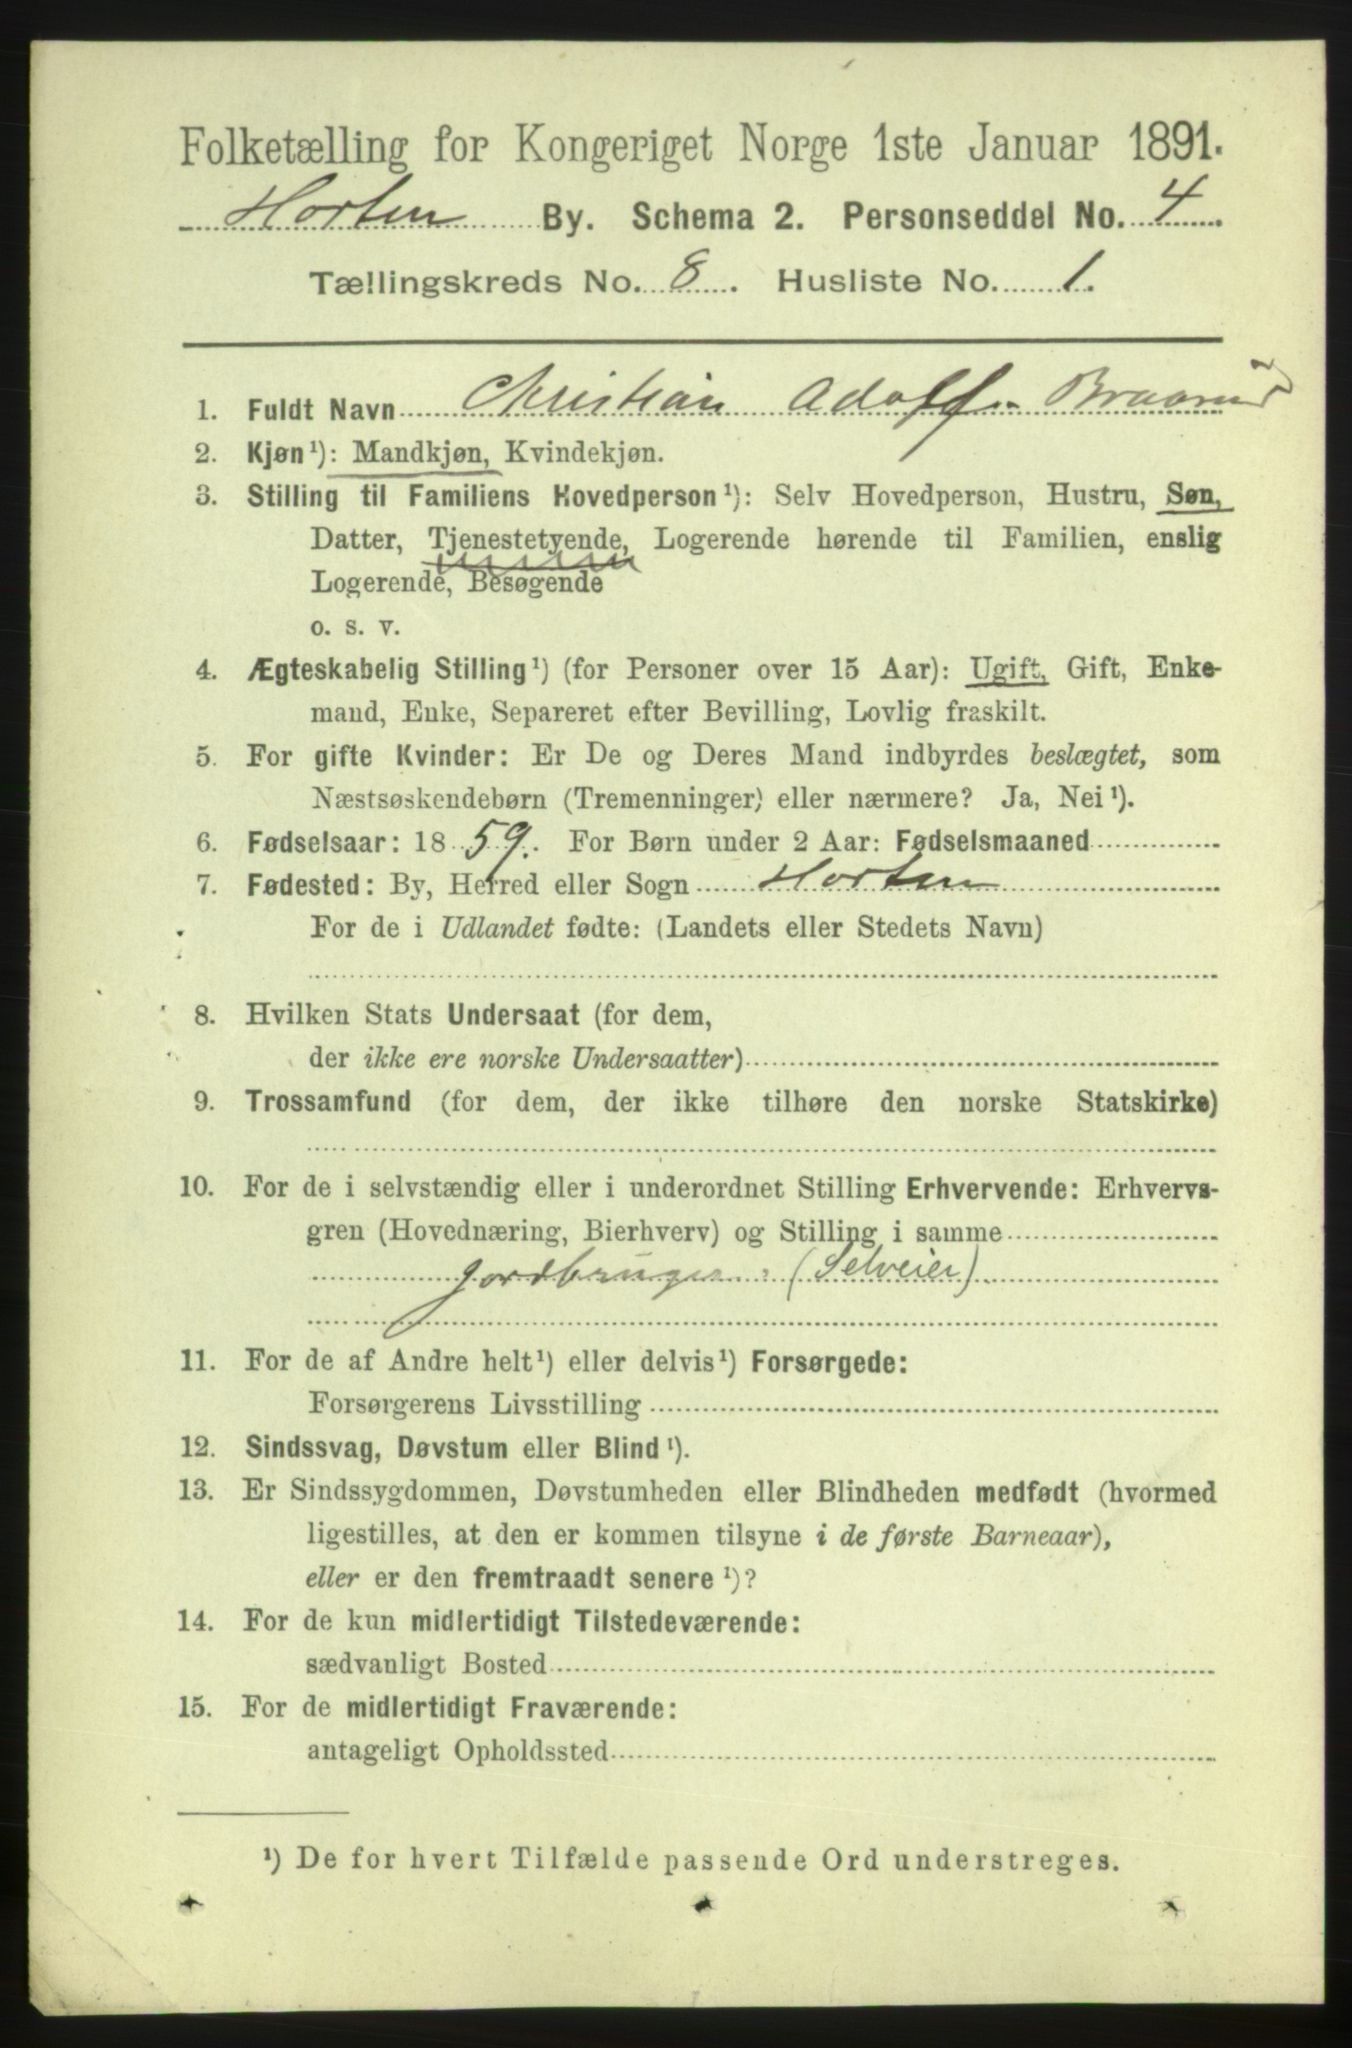 Folketælling for Kongeriget Norge 1ste Januar 1891.
Horten By. Schema 2. Personseddel No. 4
Tællingskreds No. 8. Husliste No. 1.
1. Fuldt Navn Christian Adolf Braarud
2. Kjøn¹): Mandkjøn, Kvindekjøn.
3. Stilling til Familiens Hovedperson¹): Selv Hovedperson, Hustru, Søn,
Datter, Tjenestetyende, Logerende hørende til Familien, enslig
Logerende, Besøgende
o. s. v.
4. Ægteskabelig Stilling¹) (for Personer over 15 Aar): Ugift, Gift, Enke-
mand, Enke, Separeret efter Bevilling, Lovlig fraskilt.
5. For gifte Kvinder: Er De og Deres Mand indbyrdes beslægtet, som
Næstsøskendebørn (Tremenninger) eller nærmere? Ja, Nei¹).
6. Fødselsaar: 1859. For Børn under 2 Aar: Fødselsmaaned
7. Fødested: By, Herred eller Sogn Horten
For de i Udlandet fødte: (Landets eller Stedets Navn)
8. Hvilken Stats Undersaat (for dem,
der ikke ere norske Undersaatter)
9. Trossamfund (for dem, der ikke tilhøre den norske Statskirke)
10. For de i selvstændig eller i underordnet Stilling Erhvervende: Erhvervs-
gren (Hovednæring, Bierhverv) og Stilling i samme
Jordbruger (Selveier)
11. For de af Andre helt¹) eller delvis¹) Forsørgede:
Forsørgerens Livsstilling
12. Sindssvag, Døvstum eller Blind¹).
13. Er Sindssygdommen, Døvstumheden eller Blindheden medfødt (hvormed
ligestilles, at den er kommen tilsyne i de første Barneaar),
eller er den fremtraadt senere¹)?
14. For de kun midlertidigt Tilstedeværende:
sædvanligt Bosted
15. For de midlertidigt Fraværende:
antageligt Opholdssted
¹) De for hvert Tilfælde passende Ord understreges.